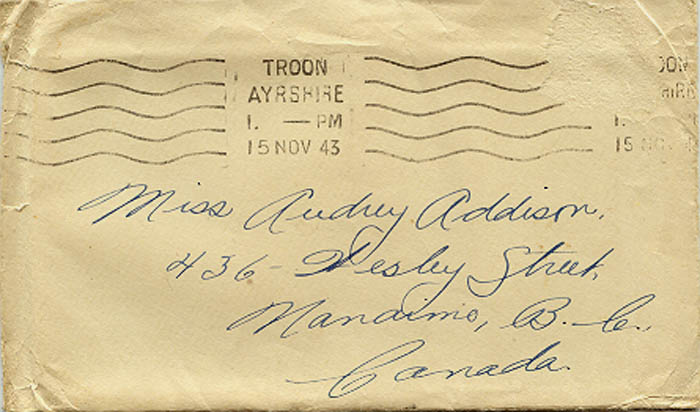 TROON
AYRSHIRE
1. — PM
15 NOV 43
1.
15 NOV
Miss Audrey Addison.
436 - Wesley Street,
Nanaimo, B.C.
Canada.